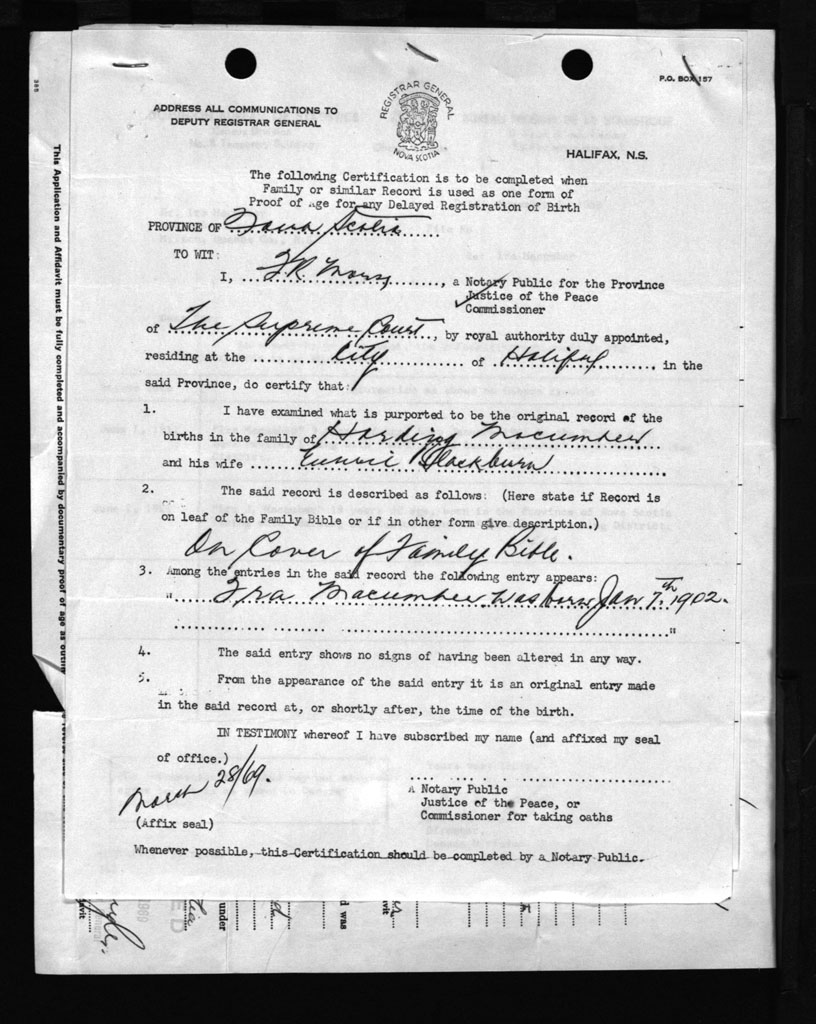 P.O. BOX 157
ADDRESS ALL COMMUNICATIONS TO
DEPUTY REGISTRAR GENERAL
REGISTRAR GENERAL
NOVA SCOTIA
HALIFAX, N.S.
The following Certification is to be completed when
Family or similar Record is used as one form of
Proof of Age for any Delayed Registration of Birth
PROVINCE OF Nova Scotia
TO WIT:
I, , a Notary Public for the Province
Justice of the Peace
Commissioner
of The Supreme Court, by royal authority duly appointed,
residing at the City of Halifax in the
said Province, do certify that:
1. I have examined what is purported to be the original record of the
births in the family of Harding Macumber
and his wife Eunice Blackburn
2. The said record is described as follows: (Here state if Record is
on leaf of the Family Bible or if in other form give description.)
On Cover of Family Bible.
3. Among the entries in the said record the following entry appears:
" Ira Macumber was born Jan 7th, 1902.
"
4. The said entry shows no signs of having been altered in any way.
5. From the appearance of the said entry it is an original entry made
in the said record at, or shortly after, the time of the birth.
IN TESTIMONY whereof I have subscribed my name (and affixed my seal
of office.)
March 28/69.
A Notary Public
Justice of the Peace, or
Commissioner for taking oaths
(Affix seal)
Whenever possible, this Certification should be completed by a Notary Public.
This Application and Affidavit must be fully completed and accompanied by documentary proof of age as
under
d was